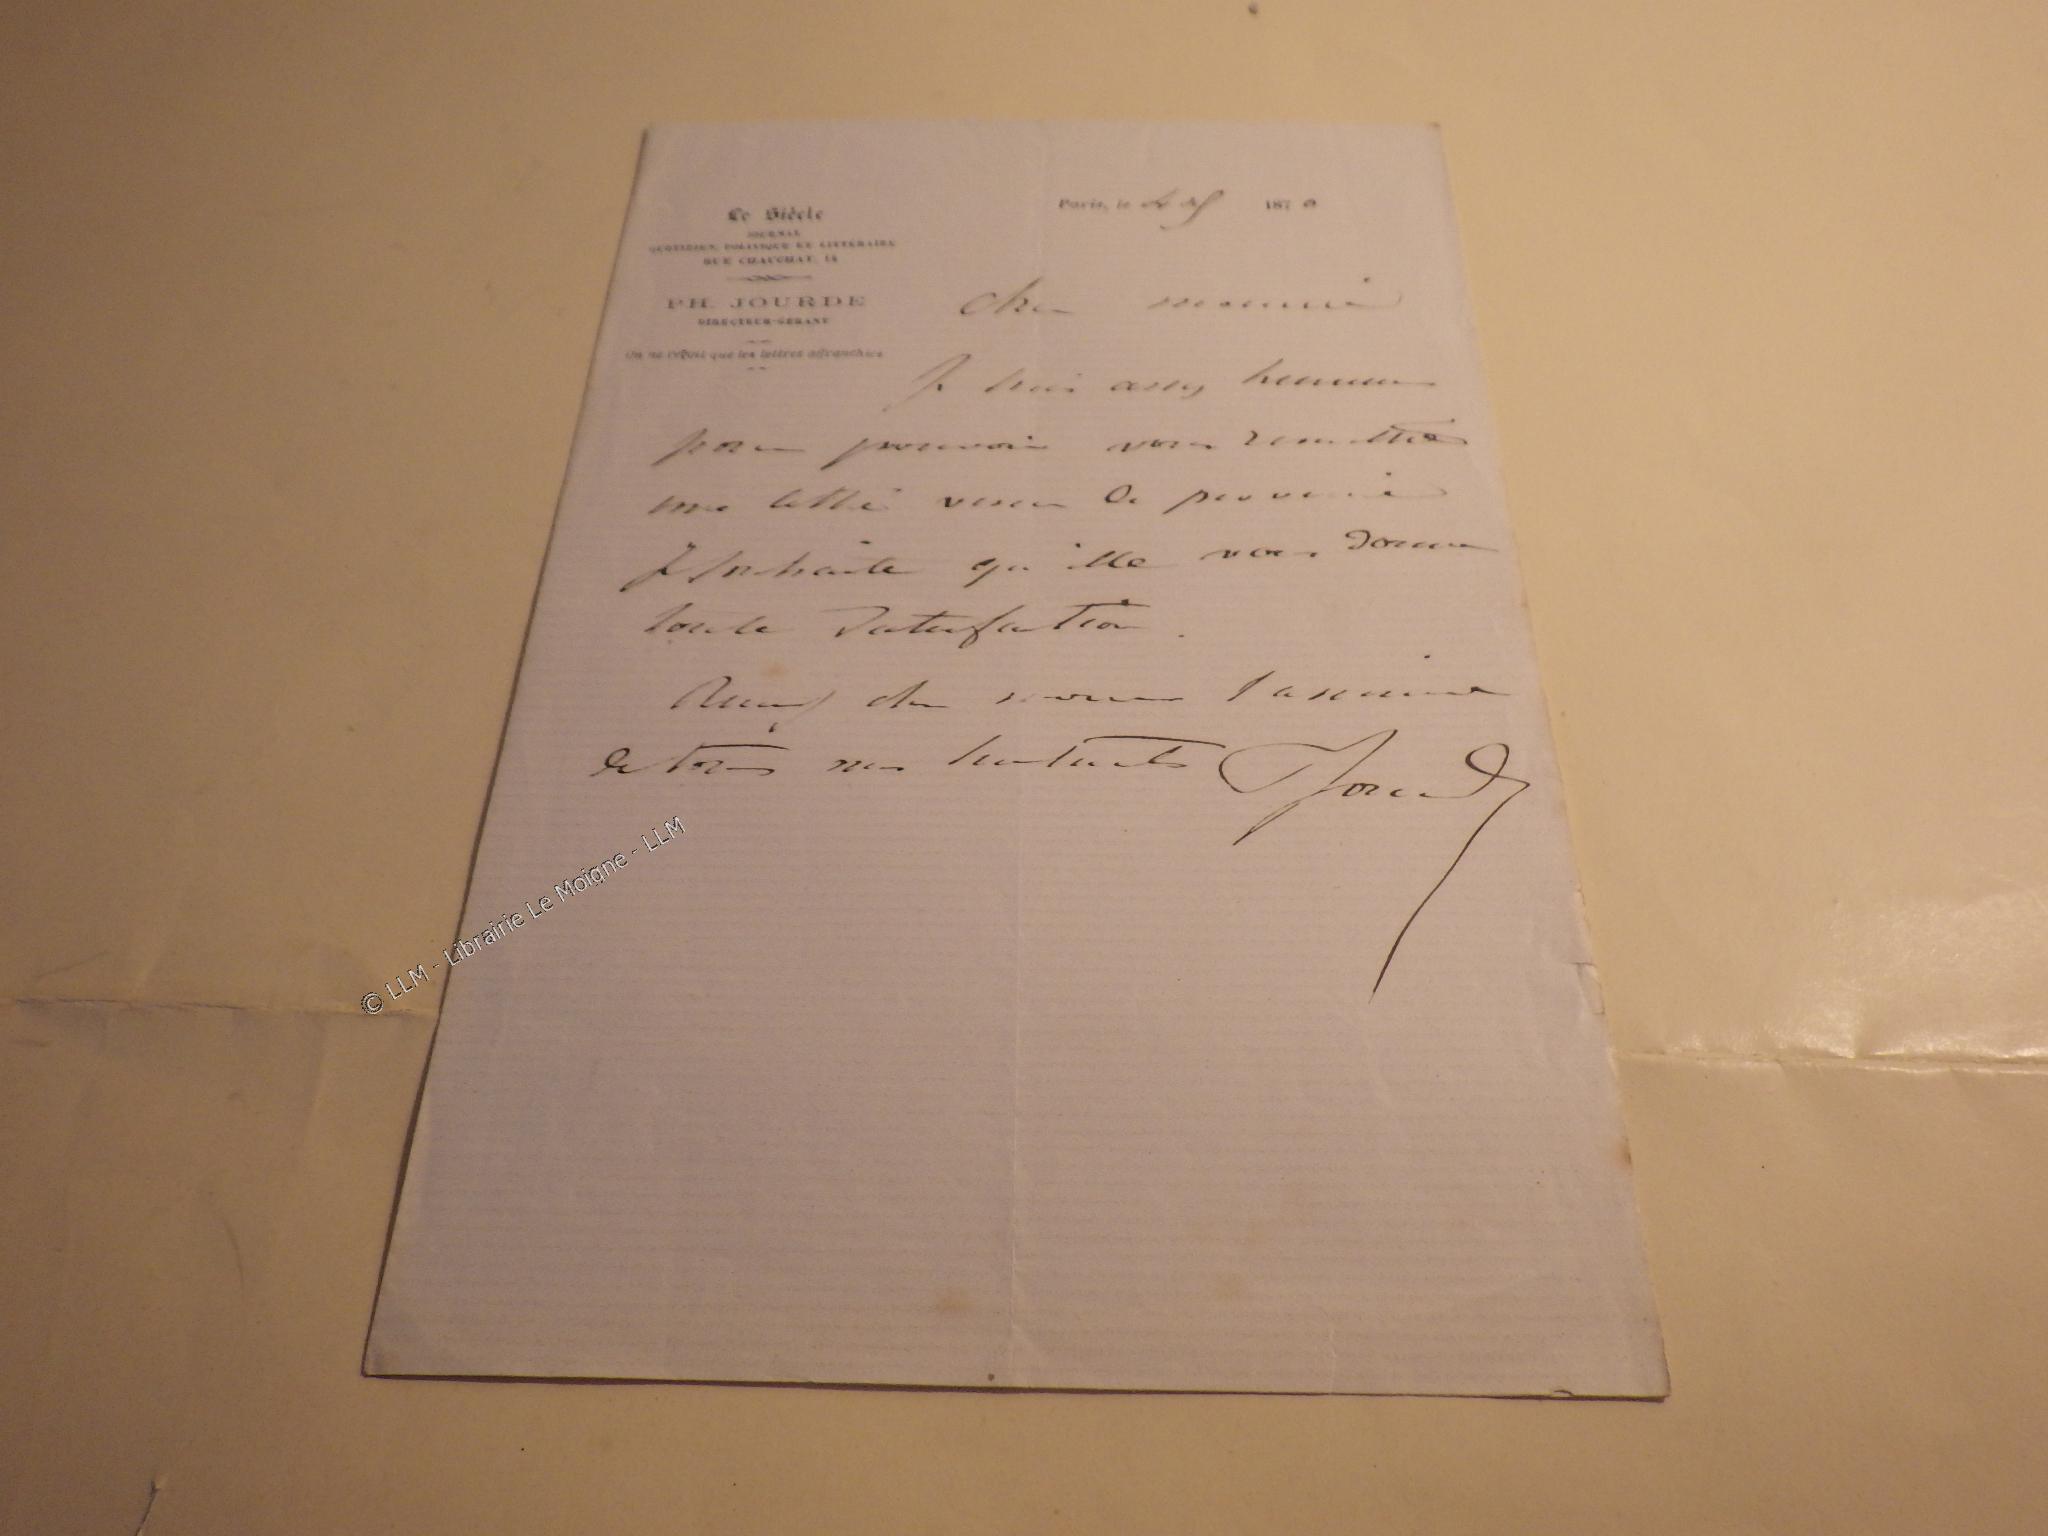 Le Siècle
JOURNAL
QUOTIDIEN, POLITIQUE ET LITTÉRAIRE
RUE CHAUCHAT, 14
PH. JOURDE
DIRECTEUR-GÉRANT
On ne reçoit que les lettres affranchies
Paris, le 187
Cher monsieur
Je suis assez heureux
pour pouvoir vous remettre
une lettre
Je souhaite qu'elle vous donne
toute satisfaction.
cher monsieur l'assurance
de tous mes sentiments Jourde
© LLM - Librairie Le Moigne - LLM